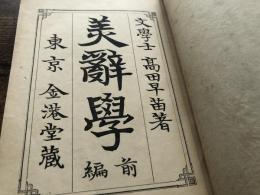 文學士 高田早苗著
美辭學
前編
東京 金港堂藏